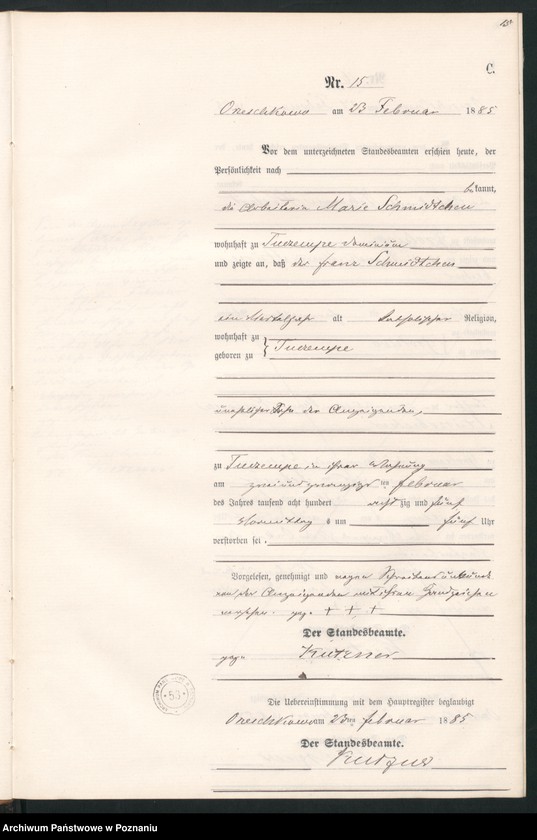 C.
Nr. 15
Oreschkowo am 23 Februar 1885
Vor dem unterzeichneten Standesbeamten erschien heute, der
Persönlichkeit nach
bekannt,
die Arbeiterin Marie Schmidtchen
wohnhaft zu Turzempe dominium
und zeigte an, daß der Franz Schmidtchen
ein Viertel Jahr alt katholischer Religion,
wohnhaft zu
geboren zu Turzempe
unehelicher Sohn der Anzeigenden,
zu Turzempe in ihrer Wohnung
am zwei und zwanzigsten Februar
des Jahres tausend acht hundert achtzig und fünf
Vormittags um fünf Uhr
verstorben sei.
Vorgelesen, genehmigt und wegen Schreibensunkunde
von der Anzeigenden mit ihrem Handzeichen
versehen. gez. + + +
Der Standesbeamte.
gez. Kutzner
Die Uebereinstimmung mit dem Hauptregister beglaubigt
Oreschkowo am 23ten Februar 1885
Der Standesbeamte.
Kutzner
53
Archiwum Państwowe w Poznaniu